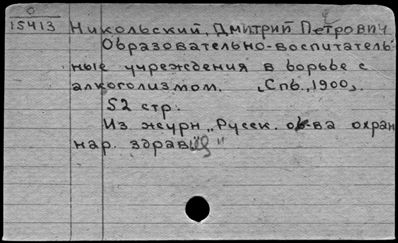 0
15413
Никольский, Дмитрий Петрович
Образовательно-воспитатель-
ные учреждения в борьбе с
алкоголизмом. „Спб., 1900„.
52 стр.
Из журн „Русск. о-ва охран
нар. здрав"